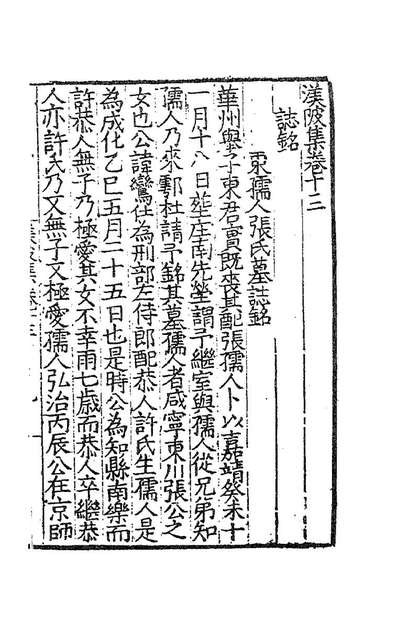 渼陂集卷十三
誌銘
東孺人張氏墓誌銘
華州舉子東君實既喪其配張孺人卜以嘉靖癸未十
一月十八日葬庄南先塋謂予繼室與孺人從兄弟知
孺人乃來鄠杜請予銘其墓孺人者咸寧東川張公之
女也公諱鸞仕為刑部左侍郎配恭人許氏生孺人是
為成化乙巳五月二十五日也是時公為知縣南樂而
許恭人無子乃極愛其女不幸甫七歲而恭人卒繼恭
人亦許氏乃又無子又極愛孺人弘治丙辰公在京師